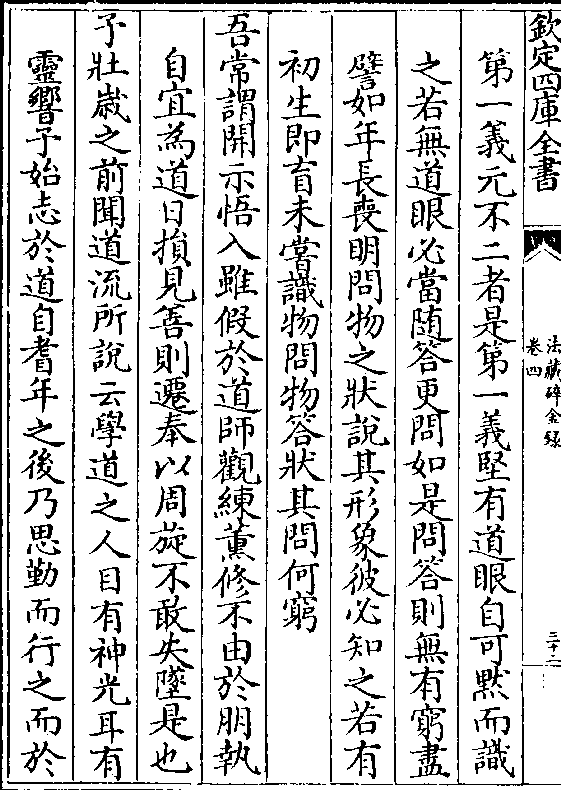 欽定四庫全書
法藏碎金録
卷四
三十二
第一義元不二者是第一義堅有道眼自可黙而識
之若無道眼必當随答更問如是問答則無有窮盡
譬如年長喪明問物之狀說其形象彼必知之若有
初生即盲未嘗識物問物答狀其問何窮
吾常謂開示悟入雖假於道師觀練薰修不由於朋執
自宜為道日損見善則遷奉以周旋不敢失墜是也
予壯嵗之前聞道流所說云學道之人目有神光耳有
靈響予始志於道自耆年之後乃思勤而行之而於